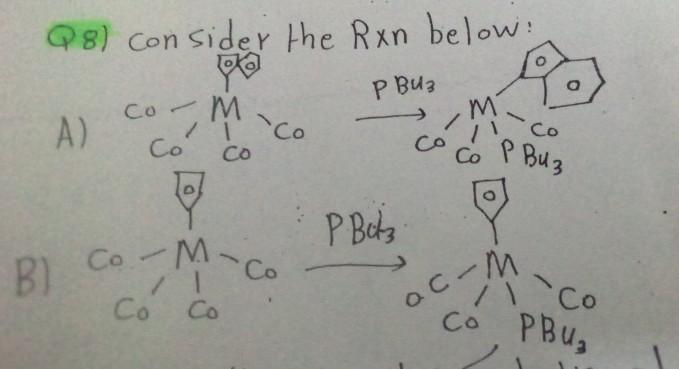 Q8) consider the Rxn below:
A) Co M Co Co Co PBu3 M Co Co PBu3 Co
B) Co M Co Co Co PBu3 M OC Co PBu3 Co